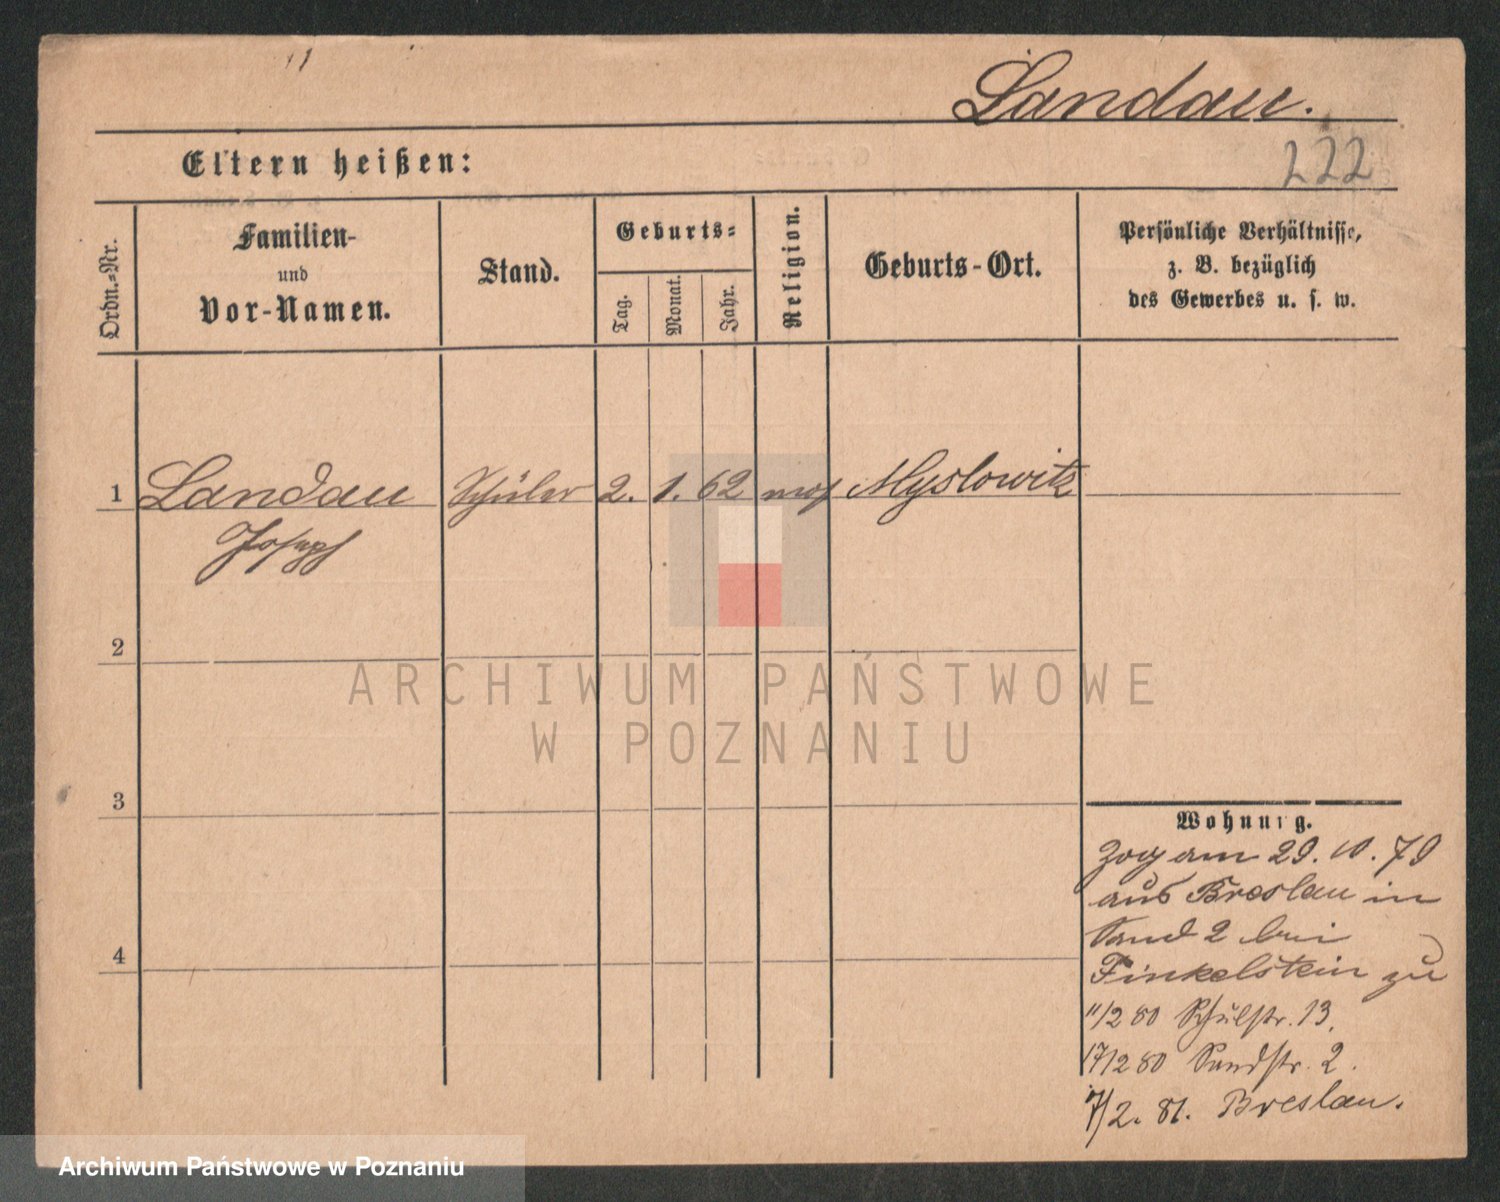 Landau.
222
Eltern heißen:
Ordn.-Nr.
Familien-
und
Vor-Namen.
Stand.
Geburts-
Tag.
Monat.
Jahr.
Religion.
Geburts-Ort.
Persönliche Verhältnisse,
z. B. bezüglich
des Gewerbes u. s. w.
1 Landau Schüler 2. 1. 62 mos Myslowitz
Joseph
2
ARCHIWUM PAŃSTWOWE
W POZNANIU
3
Wohnung.
Zog am 29. 10. 79
aus Breslau in
Sand 2 bei
4
Finkelstein zu
11/2 80 Schulstr. 13.
17/2 80 Sandstr. 2.
7/2. 81. Breslau.
Archiwum Państwowe w Poznaniu